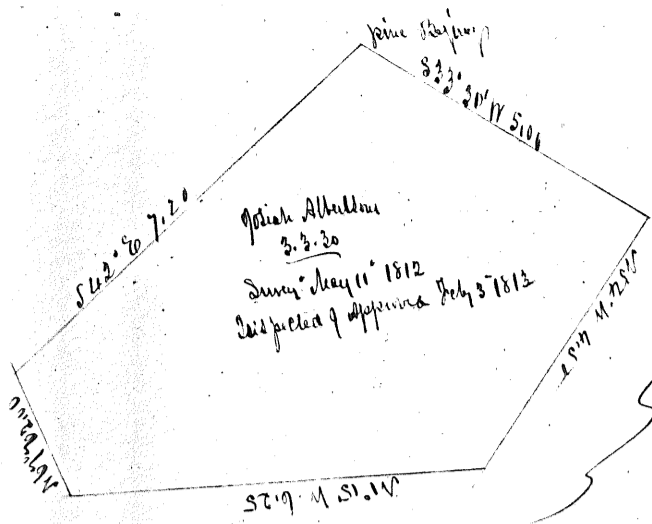 pine Beginning
S 33° 30' W 5.06
S 42° E 7.20
Josiah Albertson
3.3.30
Survey.d May 11th 1812
Inspected & Approved Feby 3d 1813
N 57° W 4.50
N 1° 15' W 6.25